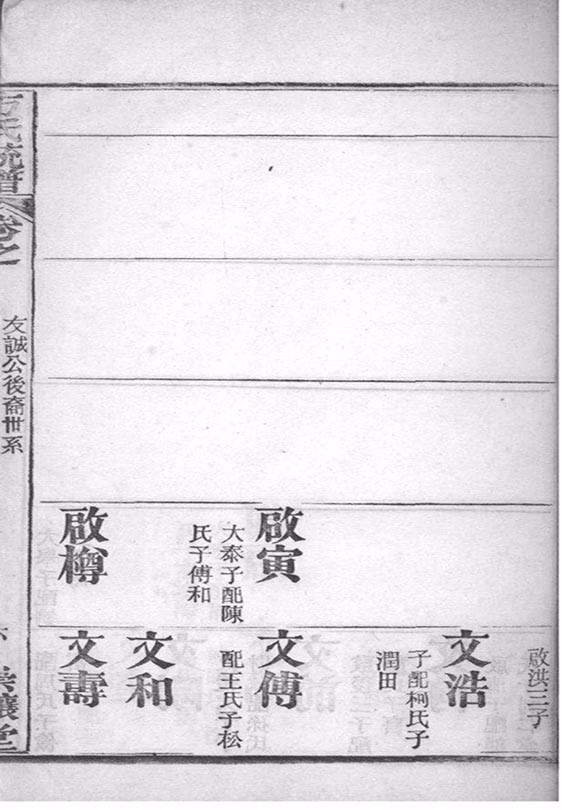 啟洪三子
文浩
子配柯氏子
潤田
啟寅
大泰子配陳
氏子傅和
文傅
配王氏子松
文和
啟樽
文壽
氏統譜
卷之
友誠公後裔世系